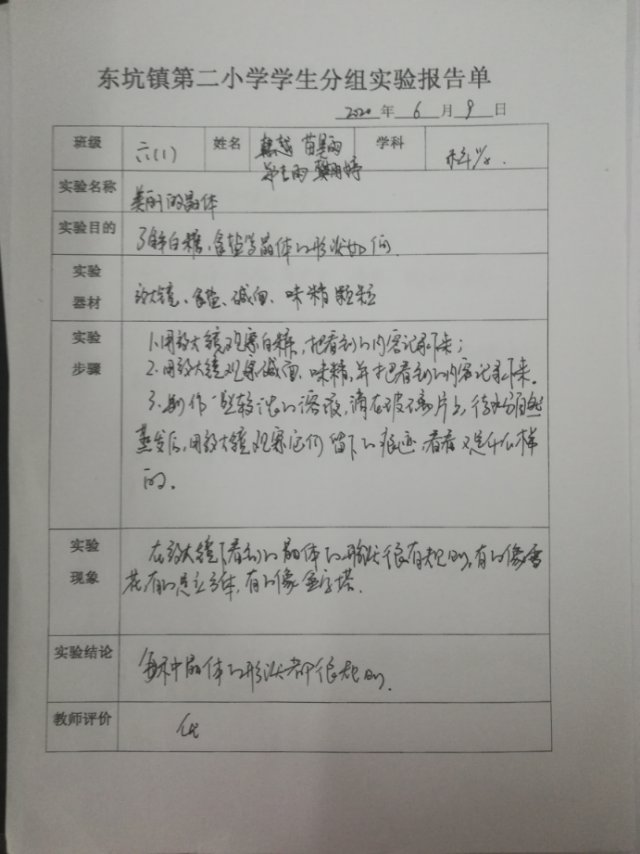 东坑镇第二小学学生分组实验报告单
2020 年 6 月 9 日
班级 六(1) 姓名 学科 科学.
实验名称 美丽的晶体
实验目的 了解白糖、食盐等晶体的形状如何.
实验
器材
放大镜、食盐、碱面、味精颗粒
实验
步骤
1.用放大镜观察白糖,把看到的内容记录下来;
2.用放大镜观察碱面、味精,并把看到的内容记录下来。
3.制作一些较浓的溶液,滴在玻璃片上,待水分自然
蒸发后,用放大镜观察它们留下的痕迹,看看又是什么样
的。
实验
现象
在放大镜下看到的晶体的形状很有规则,有的像雪
花,有的是立方体,有的像金字塔.
实验结论 晶体的形状都很规则.
教师评价 优